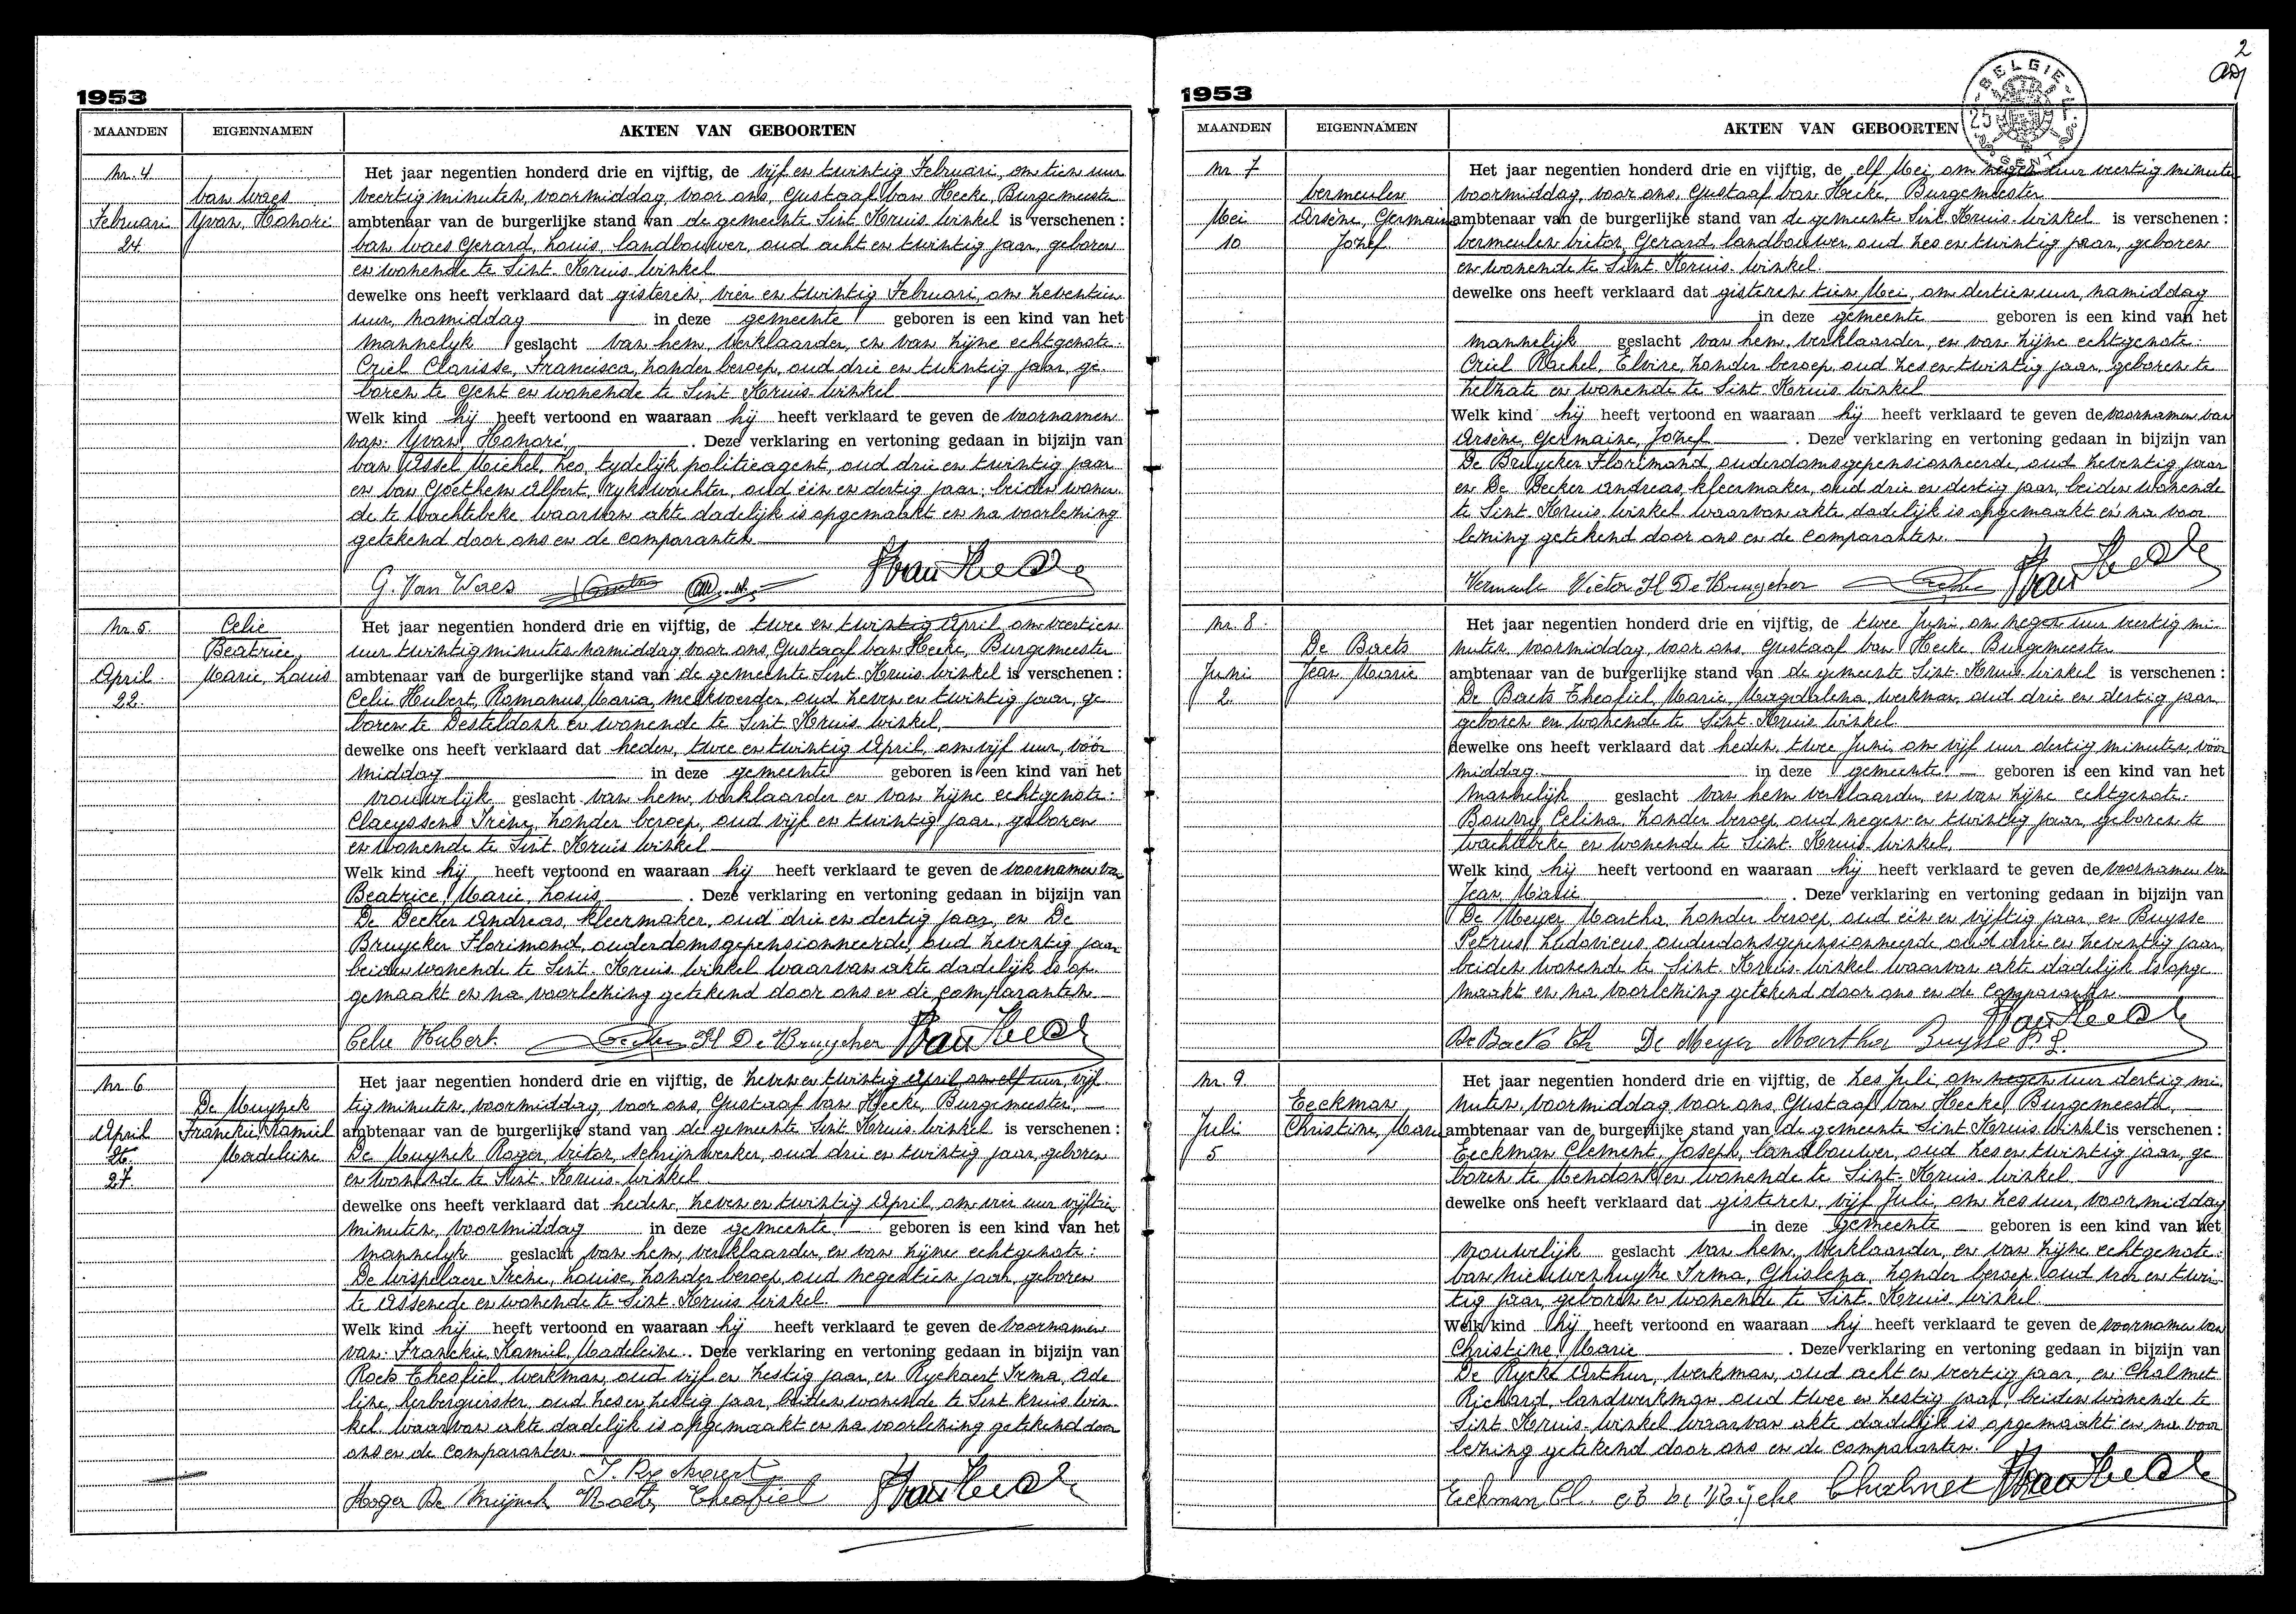 1953
MAANDEN EIGENNAMEN AKTEN VAN GEBOORTEN
Nr. 4
Van Waes
Februari Yvan, Honoré
24.
Het jaar negentien honderd drie en vijftig, de vijf en twintig Februari, om tien uur
veertig minuten, voormiddag, voor ons, Gustaaf Van Hecke, Burgemeester
ambtenaar van de burgerlijke stand van de gemeente Sint Kruis Winkel is verschenen :
Van Waes Gerard, Louis, landbouwer, oud acht en twintig jaar, geboren
en wonende te Sint. Kruis Winkel
dewelke ons heeft verklaard dat gisteren, vier en twintig Februari, om zeventien
uur, namiddag in deze gemeente geboren is een kind van het
mannelyk geslacht van hem, verklaarder, en van zijne echtgenote:
Criel Clarisse, Francisca, zonder beroep, oud drie en twintig jaar, ge-
boren te Gent en wonende te Sint Kruis Winkel
Welk kind hij heeft vertoond en waaraan hij heeft verklaard te geven de voornamen
van: Yvan, Honoré, . Deze verklaring en vertoning gedaan in bijzijn van
Van Assel Michel, Leo, tydelijk politieagent, oud drie en twintig jaar
en Van Goethem Albert, rykswachter, oud één en dertig jaar, beiden wonen-
de te Wachtebeke waarvan akte dadelijk is opgemaakt en na voorlezing
getekend door ons en de comparanten.
G. Van Waes
Nr. 5. Celie
Beatrice,
April Marie, Louis
22.
Het jaar negentien honderd drie en vijftig, de twee en twintig April, om veertien
uur twintig minuten namiddag voor ons, Gustaaf Van Hecke, Burgemeester
ambtenaar van de burgerlijke stand van de gemeente Sint Kruis Winkel is verschenen :
Celie Hubert, Romanus, Maria, melkvoerder, oud zeven en twintig jaar, ge-
boren te Desteldonk en wonende te Sint Kruis Winkel,
dewelke ons heeft verklaard dat heden, twee en twintig April, om vijf uur, vóór
middag in deze gemeente geboren is een kind van het
vrouwelijk geslacht van hem, verklaarder en van zijne echtgenote:
Claeyssens Irène, zonder beroep, oud vijf en twintig jaar, geboren
en wonende te Sint. Kruis Winkel
Welk kind hij heeft vertoond en waaraan hij heeft verklaard te geven de voornamen van
Beatrice, Marie, Louis . Deze verklaring en vertoning gedaan in bijzijn van
De Decker Andreas, kleermaker, oud drie en dertig jaar, en De
Bruycker Florimond, ouderdomsgepensionneerde, oud zeventig jaar
beiden wonende te Sint. Kruis Winkel waarvan akte dadelijk is op-
gemaakt en na voorlezing getekend door ons en de comparanten
Celie Hubert. Fl De Bruycker
Nr. 6
De Muynck
April Franckie, Kamiel
26. Madeleine
27.
Het jaar negentien honderd drie en vijftig, de zeven en twintig April om elf uur, vijf-
tig minuten, voormiddag, voor ons, Gustaaf Van Hecke, Burgemeester,
ambtenaar van de burgerlijke stand van de gemeente Sint Kruis Winkel is verschenen :
De Muynck Roger, Victor, schrijnwerker, oud drie en twintig jaar, geboren
en wonende te Sint. Kruis Winkel
dewelke ons heeft verklaard dat heden, zeven en twintig April, om vier uur vijftien
minuten, voormiddag in deze gemeente geboren is een kind van het
mannelyk geslacht van hem, verklaarder, en van zijne echtgenote:
De Wispelaere Irène, Louise, zonder beroep, oud negentien jaar, geboren
te Assenede en wonende te Sint. Kruis Winkel.
Welk kind hij heeft vertoond en waaraan hij heeft verklaard te geven de voornamen
van: Franckie, Kamiel, Madeleine. Deze verklaring en vertoning gedaan in bijzijn van
Roets Theofiel, werkman, oud vijf en zestig jaar, en Ryckaert Irma, Ade-
line, herbergierster, oud zes en zestig jaar, beiden wonende te Sint Kruis Win-
kel waarvan akte dadelijk is opgemaakt en na voorlezing getekend door
ons en de comparanten.
Roger De Muynck Roets Theofiel
1953
2
BELGIE
GENT
MAANDEN EIGENNAMEN AKTEN VAN GEBOORTEN
Nr. 7
Vermeulen
Mei Arsène, Germaine
10 Jozef
Het jaar negentien honderd drie en vijftig, de elf Mei om negen uur veertig minuten
voormiddag, voor ons, Gustaaf Van Hecke, Burgemeester
ambtenaar van de burgerlijke stand van de gemeente Sint Kruis-Winkel is verschenen :
Vermeulen Victor, Gerard, landbouwer, oud zes en twintig jaar, geboren
en wonende te Sint. Kruis. Winkel.
dewelke ons heeft verklaard dat gisteren tien Mei, om dertien uur, namiddag
in deze gemeente geboren is een kind van het
mannelijk geslacht van hem, verklaarder, en van zijne echtgenote:
Criel Rachel, Elvire, zonder beroep, oud zes en twintig jaar, geboren te
Zelzate en wonende te Sint. Kruis Winkel
Welk kind hij heeft vertoond en waaraan hij heeft verklaard te geven de voornamen van
Arsène, Germaine, Jozef . Deze verklaring en vertoning gedaan in bijzijn van
De Bruycker Florimond, ouderdomsgepensionneerde, oud zeventig jaar
en De Decker Andreas, kleermaker, oud drie en dertig jaar, beiden wonende
te Sint. Kruis. Winkel waarvan akte dadelijk is opgemaakt en na voor-
lezing getekend door ons en de comparanten.
Victor Fl De Bruycker
Nr. 8
De Baets
Juni Jean Marie
2.
Het jaar negentien honderd drie en vijftig, de twee Juni, om negen uur veertig mi-
nuten, voormiddag, voor ons, Gustaaf Van Hecke Burgemeester
ambtenaar van de burgerlijke stand van de gemeente Sint. Kruis Winkel is verschenen :
De Baets Theofiel, Marie, Magdalena, werkman, oud drie en dertig jaar,
geboren en wonende te Sint. Kruis Winkel
dewelke ons heeft verklaard dat heden, twee Juni, om vijf uur dertig minuten, vóór
middag. in deze gemeente geboren is een kind van het
mannelijk geslacht van hem verklaarder, en van zijne echtgenote:
Celina, zonder beroep, oud negen en twintig jaar, geboren te
Wachtebeke en wonende te Sint. Kruis Winkel.
Welk kind hij heeft vertoond en waaraan hij heeft verklaard te geven de voornamen van
Jean, Marie . Deze verklaring en vertoning gedaan in bijzijn van
De Meyer Martha, zonder beroep, oud één en vijftig jaar, en Buysse
Petrus, Ludovicus, ouderdomsgepensionneerde oud drie en zeventig jaar,
beiden wonende te Sint. Kruis. Winkel waarvan akte dadelijk is opge-
maakt en na voorlezing getekend door ons en de comparanten.
De Baets Th De Meyer Martha Buysse P. L.
Nr. 9.
Eeckman
Juli Christine, Marie
5
Het jaar negentien honderd drie en vijftig, de zes Juli om negen uur dertig mi-
nuten, voormiddag voor ons, Gustaaf Van Hecke, Burgemeester,
ambtenaar van de burgerlijke stand van de gemeente Sint. Kruis Winkel is verschenen :
Eeckman Clement, Joseph, landbouwer, oud zes en twintig jaar, ge-
boren te Mendonk en wonende te Sint. Kruis. Winkel
dewelke ons heeft verklaard dat gisteren, vijf Juli, om zes uur, voormiddag
in deze gemeente geboren is een kind van het
vrouwelijk geslacht van hem, verklaarder, en van zijne echtgenote:
Van Nieuwenhuyse Irma, Ghislena, zonder beroep, oud vier en twin-
tig jaar, geboren en wonende te Sint. Kruis. Winkel.
Welk kind hij heeft vertoond en waaraan hij heeft verklaard te geven de voornamen van
Christine, Marie . Deze verklaring en vertoning gedaan in bijzijn van
De Rycke Arthur, werkman, oud acht en veertig jaar, en Chalmet
Richard, landwerkman, oud twee en zestig jaar, beiden wonende te
Sint. Kruis. Winkel waarvan akte dadelijk is opgemaakt en na voor-
lezing getekend door ons en de comparanten.
Eeckman Cl. De Rijcke Chalmet